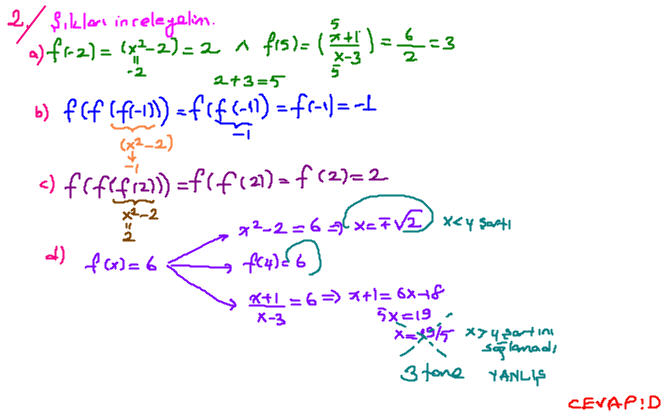 2./ Şıkları inceleyelim.
a) f(-2) = (x²-2) = 2 ∧ f(5) = (x+1/x-3) = 6/2 = 3
5
-2
5
2+3=5
b) f(f(f(-1))) = f(f(-1)) = f(-1) = -1
(x²-2)
-1
-1
c) f(f(f(2))) = f(f(2)) = f(2) = 2
x²-2
2
d) f(x)=6
x²-2=6 ⇒ x=∓√2 x<4 şartı
f(4)=6
x+1/x-3 = 6 ⇒ x+1=6x-18
5x=19
x=19/5 x>4 şartını
sağlamadı
3 tane YANLIŞ
CEVAP:D